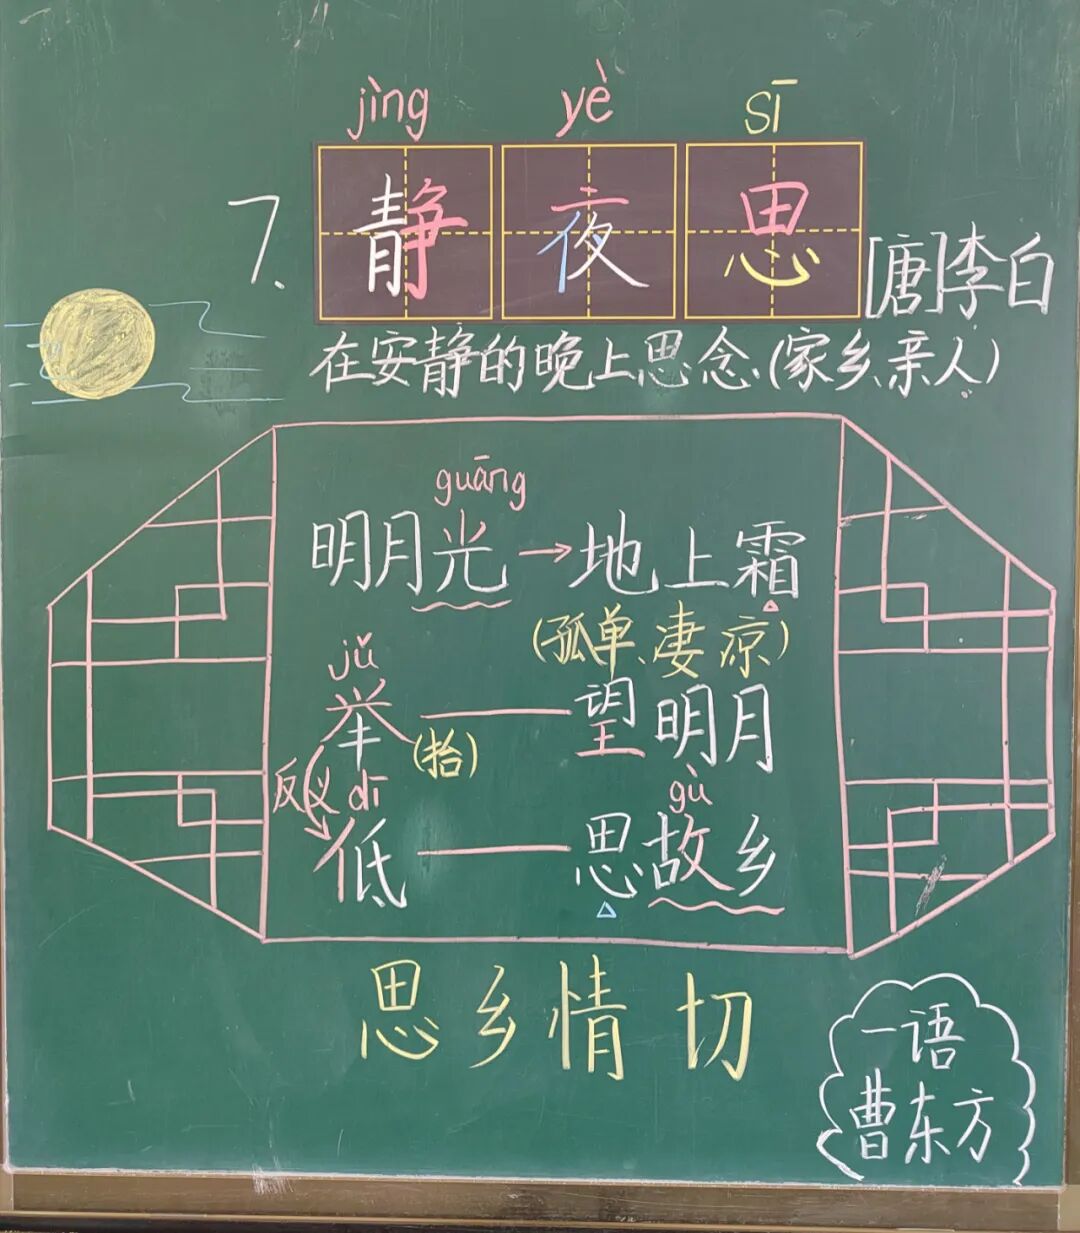 jìng yè sī
7. 静夜思 [唐]李白
在安静的晚上思念(家乡、亲人)
guāng
明月光→地上霜
(孤单、凄凉)
jǔ
举(抬)——望明月
反义 dī gù
低——思故乡
思乡情切
一语
曹东方